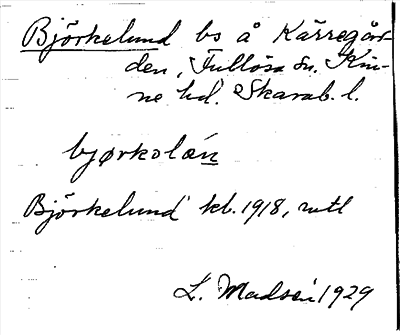 Björkelund bs å Kärregår-
den, Fullösa sn. Kin-
ne hd. Skarab. l.
bjørkolǽn
Björkelund kl. 1918, utl
L. Madsén 1929